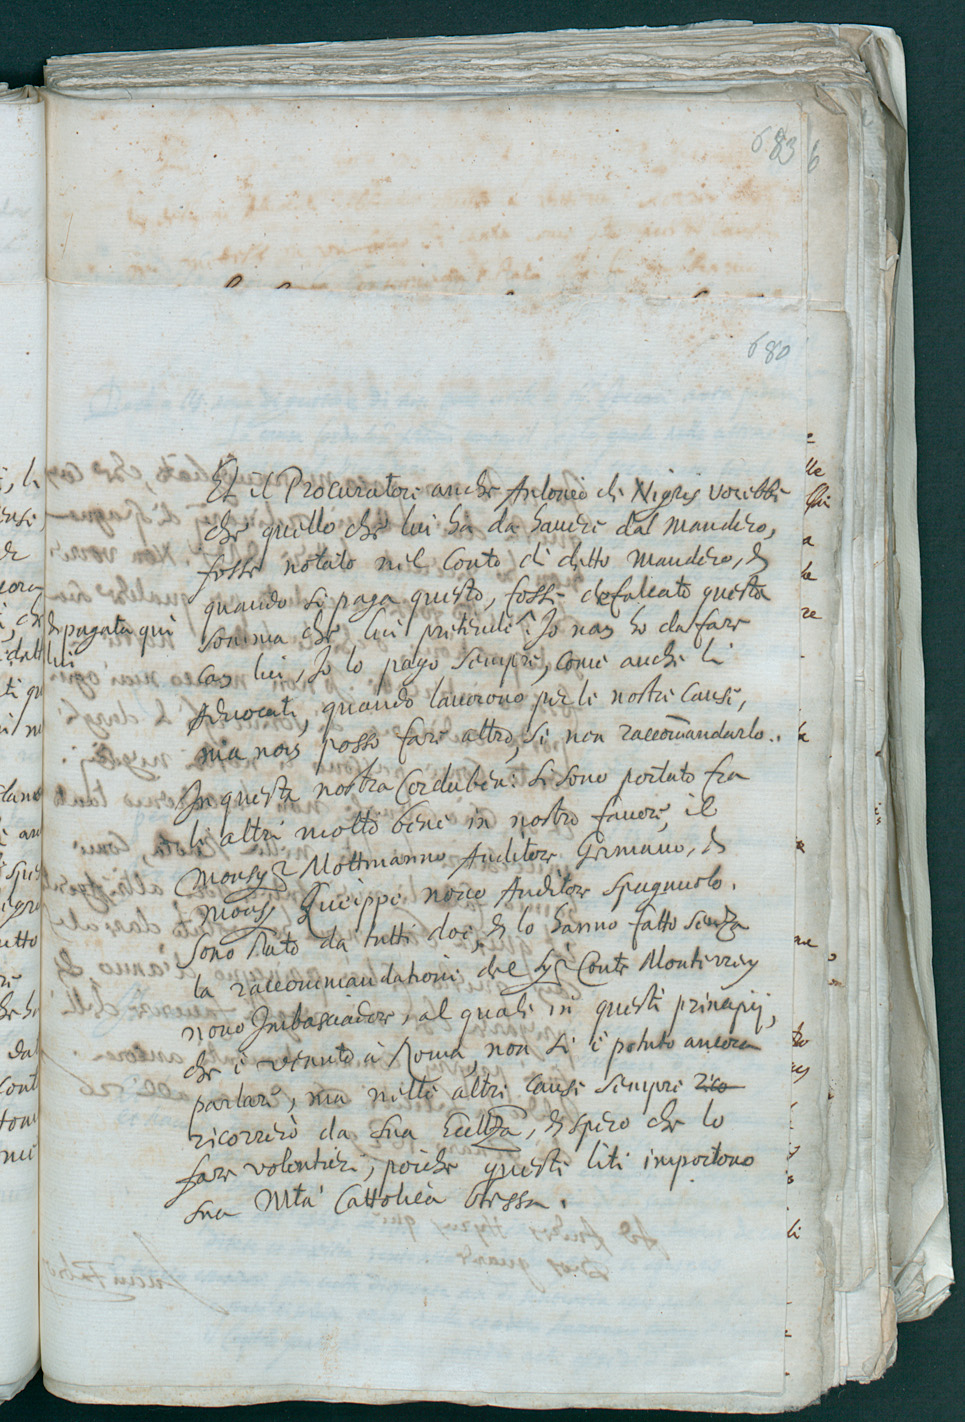 683
6
680
Et il Procuratore anche Antonio de Nigris vorebbe
che quello che lui ha da havere dal Mandero,
fosse notato nel conto di detto Mandero, et
quando si paga questo, fosse defalcato questa
somma che lui pretende. Io non ho da fare
et pagata qui
lui
con lui, Io lo pago sempre, come anche li
Advocati, quando lavorono per le nostre cause,
ma non posso fare altro, se non raccomandarlo.
In questa nostra Corduben: si sono portato fra
li altri molto bene in nostro favore, il
Monsgr Mottmanno Auditore Germano, et
Mons. Queippe novo Auditore Spagnuolo.
sono stato da tutti doi, et lo hanno fatto senza
la raccommandatione del Sigr Conte Monterrey
novo Imbasciadore, al quale in questi principij,
che è venuto à Roma, non si è potuto ancora
parlare, ma nelle altre cause sempre rico
ricorrerò da sua Eccellza, et spero che lo
fare volontieri, poiche queste liti importono
sua Mta Cattolica stessa.